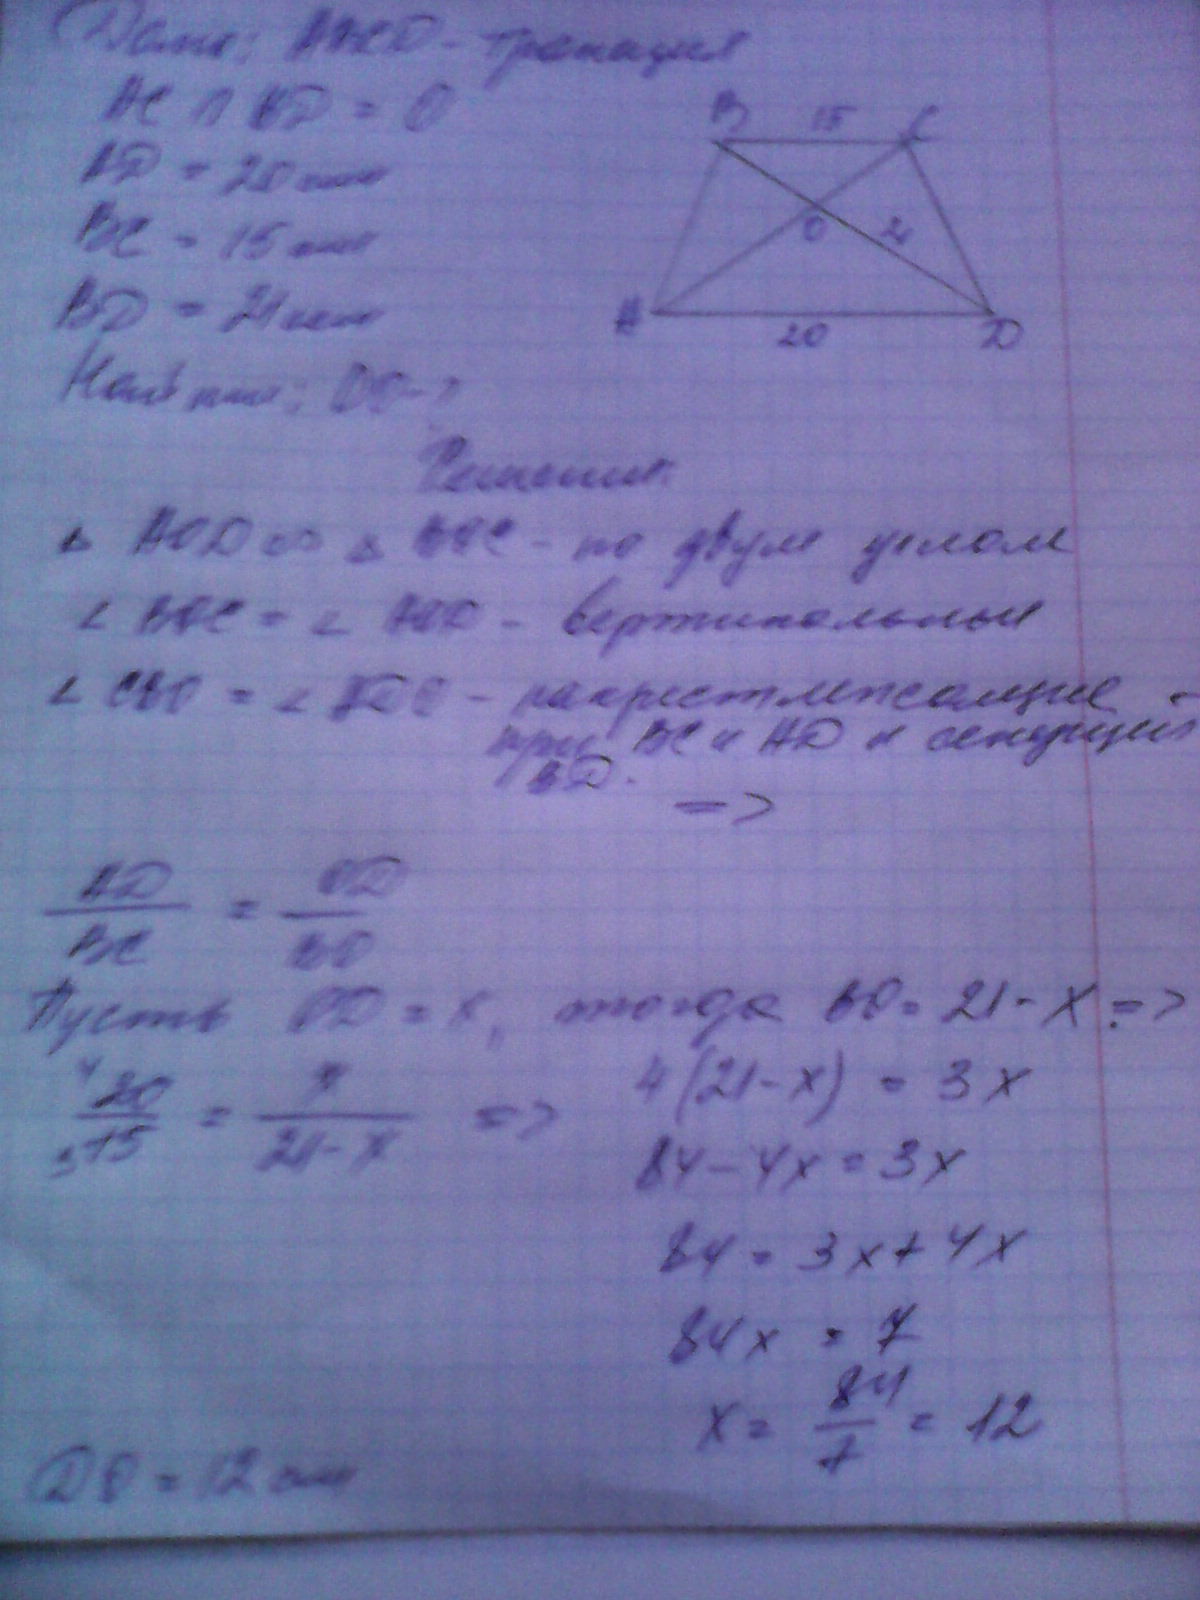 Дано: ABCD - трапеция
AC ∩ BD = O
AD = 20 см
BC = 15 см
BD = 21 см
Найти: DO - ?
B 15 C
O 21
A 20 D
Решение:
△ AOD ∾ △ BOC - по двум углам
∠ BOC = ∠ AOD - вертикальные
∠ CBO = ∠ ADO - накрестлежащие -
при BC и AD и секущей
BD.
=>
AD/BC = OD/BO
Пусть OD = x, тогда BO = 21 - x =>
4 20/15 3 = x/21-x =>
4(21-x) = 3x
84 - 4x = 3x
84 = 3x + 4x
84x = 7
x = 84/7 = 12
DO = 12 см